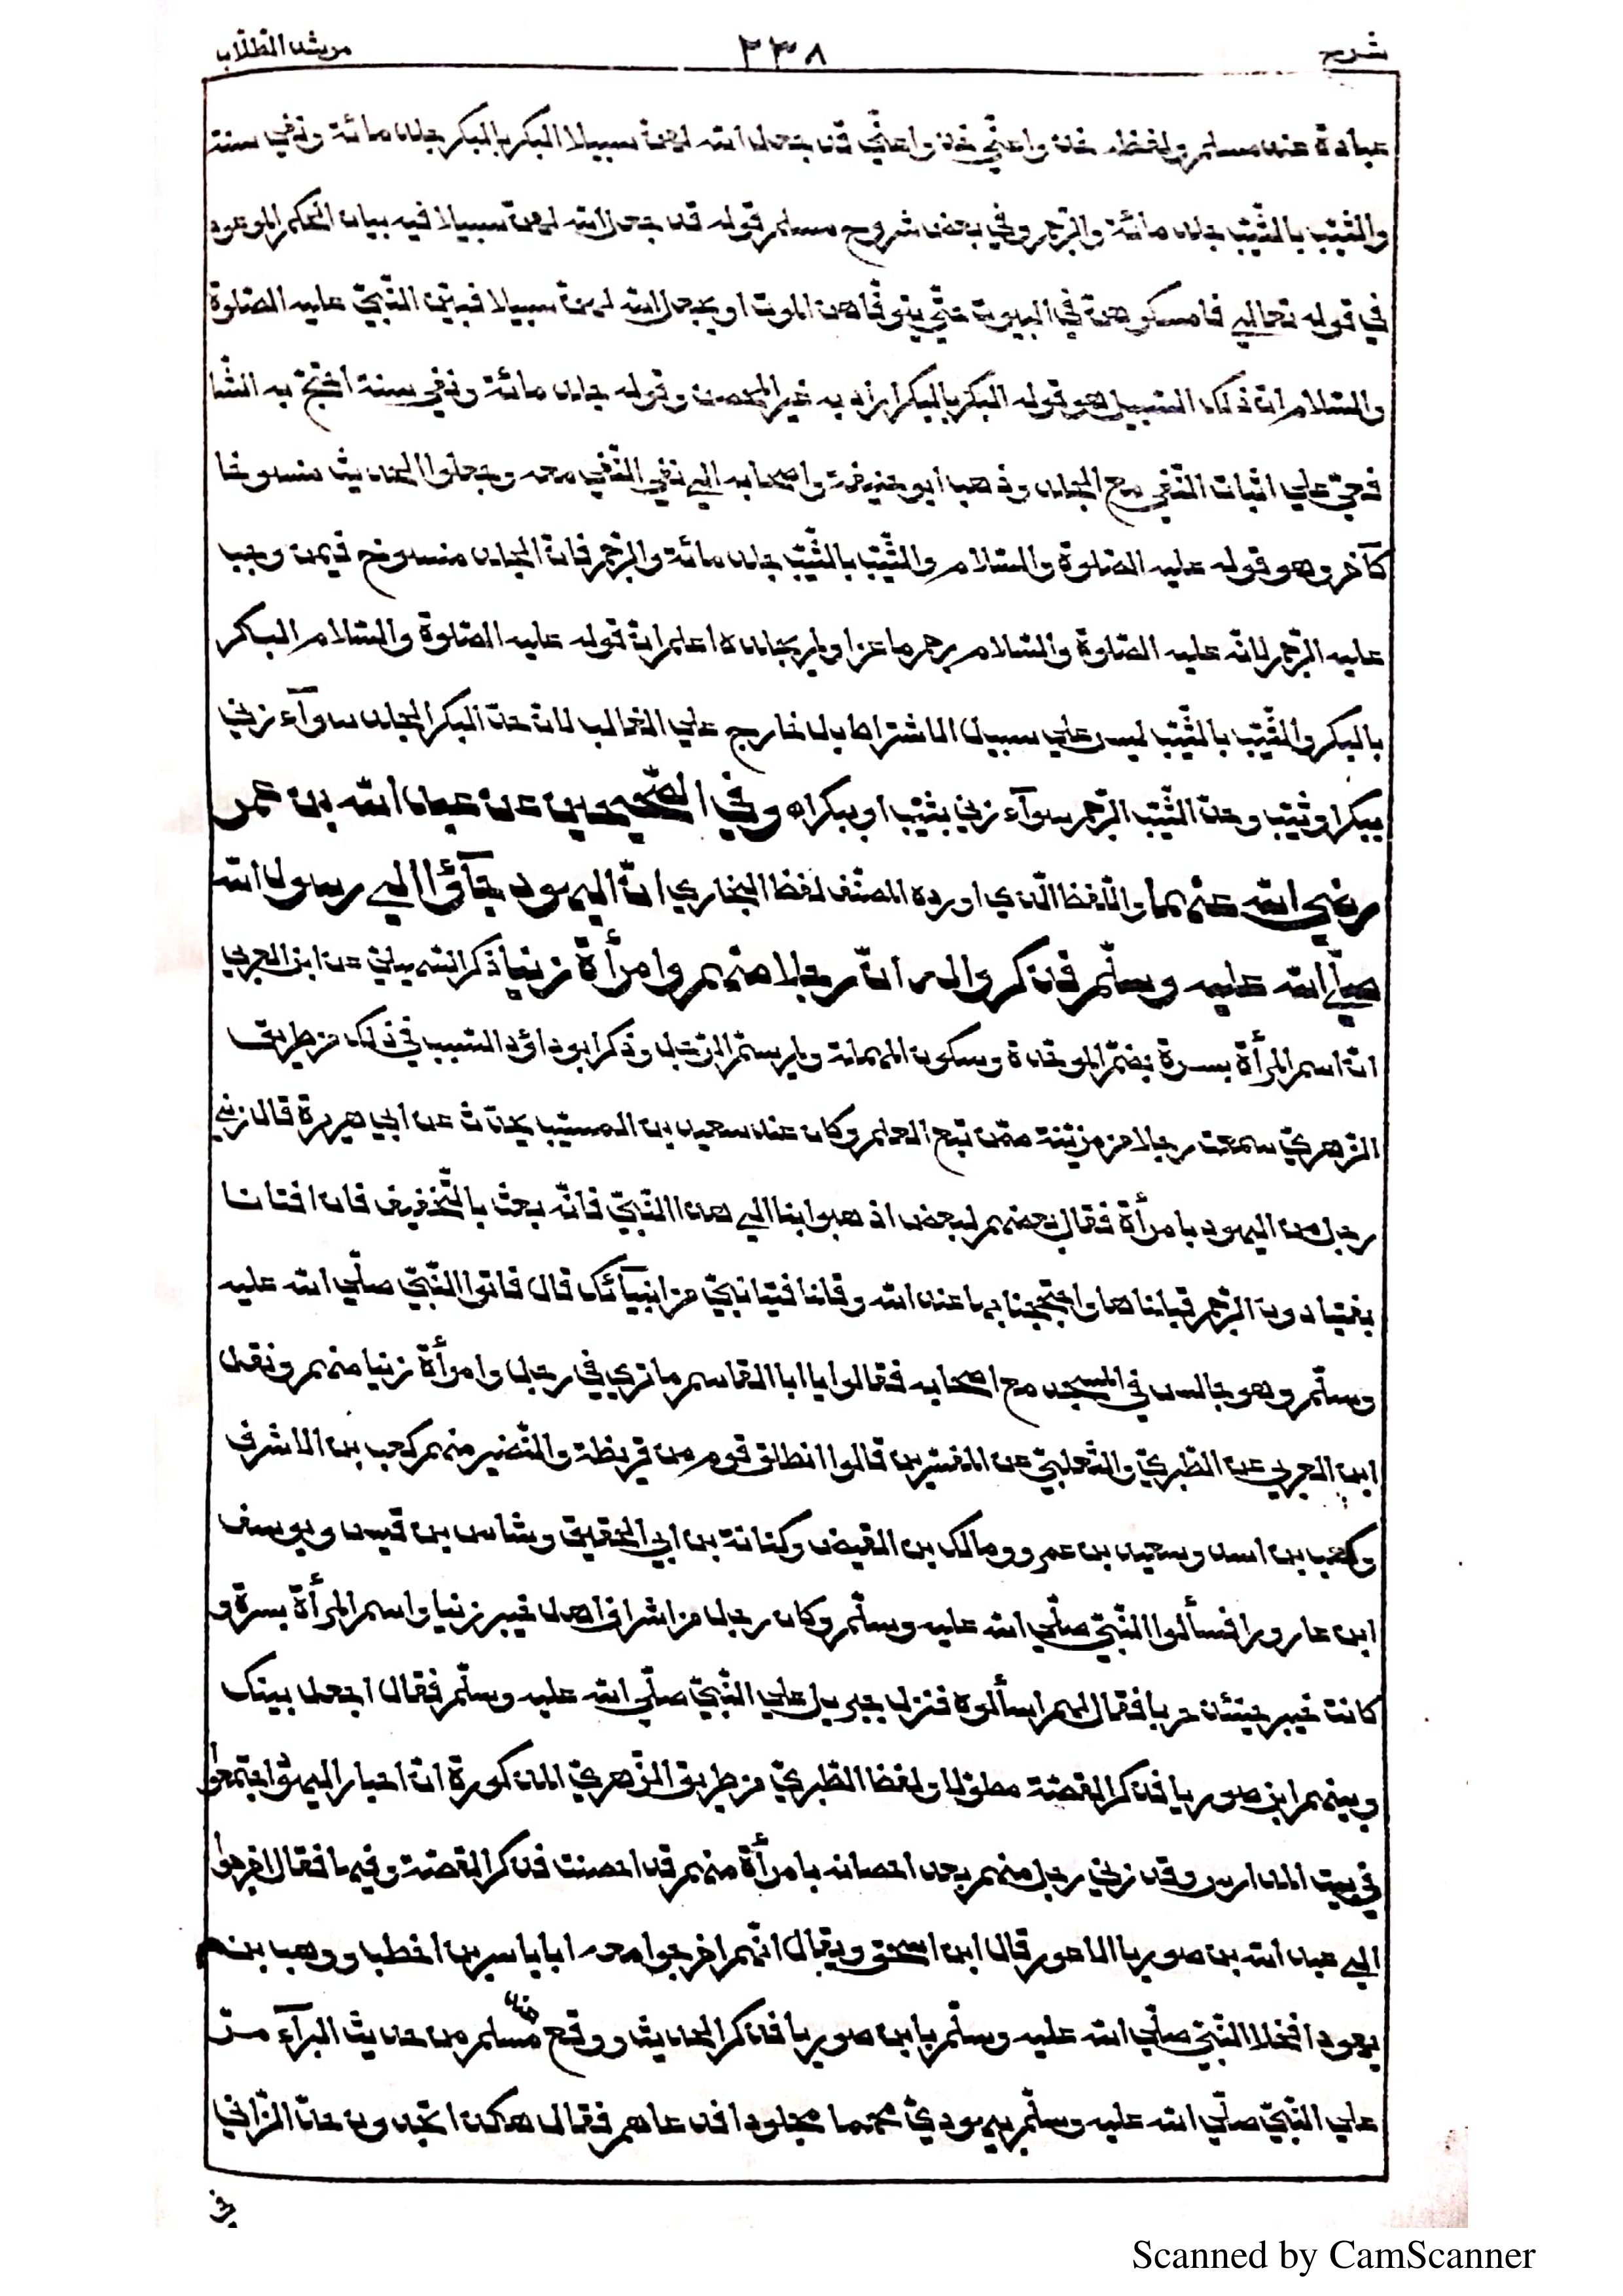 شرح ٢٣٨ مرشد الطلّاب
عبادة عند مسلم ولفظه خذوا عنّي خذوا عنّي قد جعل الله لهنّ سبيلا البكر بالبكر جلد مائة ونفي سنة
والثيّب بالثيّب جلد مائة والرّجم وفي بعض شروح مسلم قوله قد جعل الله لهنّ سبيلا فيه بيان الحكم الموعود
في قوله تعالي فامسكوهنّ في البيوت حتّي يتوفّاهن الموت او يجعل الله لهنّ سبيلا فبيّن النّبيّ عليه الصّلوة
والسّلام انّ ذلك السّبيل هو قوله البكر بالبكر اراد به غير المحصن وقوله جلد مائة ونفي سنة احتجّ به الشّا
فعيّ علي اثبات النّفي مع الجلد وذهب ابو حنيفة واصحابه الي نفي النّفي معه وجعلوا الحديث منسوخا
كآخره وهو قوله عليه الصّلوة والسّلام والثّيّب بالثّيّب جلد مائة والرّجم فانّ الجلد منسوخ فيمن وجب
عليه الرّجم لانّه عليه الصّلوة والسّلام رجم ماعزا ولم يجلده اعلم انّ قوله عليه الصّلوة والسّلام البكر
بالبكر والثّيّب بالثّيّب ليس علي سبيل الاشتراط بل خارج علي الغالب لانّ حدّ البكر الجلد سوآء زني
ببكر او ثيّب وحدّ الثّيّب الرّجم سوآء زني بثيّب او ببكر اه وفي الصّحيحين عن عبد الله بن عمر
رضي الله عنهما واللّفظ الّذي اورده المصنّف لفظ البخاري انّ اليهود جآؤا الي رسول الله
صلّي الله عليه وسلّم فذكروا له انّ رجلا منهم وامرأة زنيا ذكر السّهيلي عن ابن العربي
انّ اسم المرأة بسرة بضمّ الموحّدة وسكون المهملة ولم يسمّ الرّجل وذكر ابو داؤد السّبب في ذلك من طريق
الزّهريّ سمعت رجلا من مزينة ممّن تبع العلم وكان عند سعيد بن المسيّب يحدّث عن ابي هريرة قال زني
رجل من اليهود بامرأة فقال بعضهم لبعض اذهبوا بنا الي هذا النّبيّ فانّه بعث بالتّخفيف فان افتانا
بفتيا دون الرّجم قبلناها واحتججنا بها عند الله وقلنا فتيا نبيّ من انبيآئك قال فاتوا النّبيّ صلّي الله عليه
وسلّم وهو جالس في المسجد مع اصحابه فقالوا يا ابا القاسم ما تري في رجل وامرأة زنيا منهم ونقل
ابن العربي عن الطّبريّ والثّعلبيّ عن المفسّرين قالوا انطلق قوم من قريظة والنّضير منهم كعب بن الاشرف
وكعب بن اسد وسعيد بن عمرو ومالك بن الضّيف وكنانة بن ابي الحقيق وشاس بن قيس ويوسف
ابن عازورا فسألوا النّبيّ صلّي الله عليه وسلّم وكان رجل من اشراف اهل خيبر زنيا واسم المرأة بسرة و
كانت خيبر حينئذ حربا فقال لهم اسألوه فنزل جبريل علي النّبيّ صلّي الله عليه وسلّم فقال اجعل بينك
وبينهم ابن صوريا فذكر القصّة مطوّلا ولفظ الطّبريّ من طريق الزّهريّ المذكورة انّ احبار اليهود اجتمعوا
في بيت المدارس وقد زني رجل منهم بعد احصانه بامرأة منهم قد احصنت فذكر القصّة وفيها فقال اخرجوا
الي عبد الله بن صوريا الاعور قال ابن اسحق ويقال انّهم اخرجوا معه ابا ياسر بن اخطب ووهب بن
يهودا فخلا النّبيّ صلّي الله عليه وسلّم بابن صوريا فذكر الحديث ووقع عند مسلم من حديث البرآء مرّ
علي النّبيّ صلّي الله عليه وسلّم بيهوديّ محمما مجلودا فدعاهم فقال هكذا تجدون حدّ الزّاني
Scanned by CamScanner